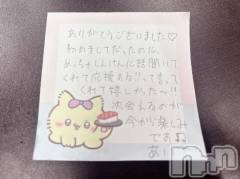 ありがとうございました♡
わがましてだったのに、
めっちゃしんけんに話聞いて
くれて応援ある!!って言って
くれて嬉しかた〜!!
次会えるのが
今から楽しみ
です♫
あい